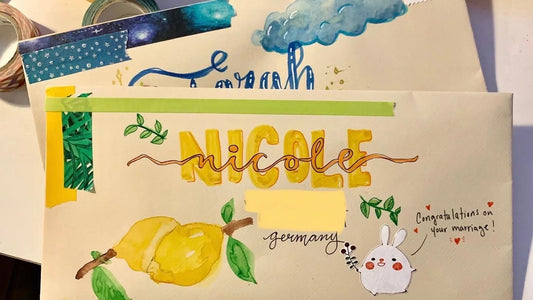 Sarah
NICOLE
nicole
germany
Congratulations on
your marriage!